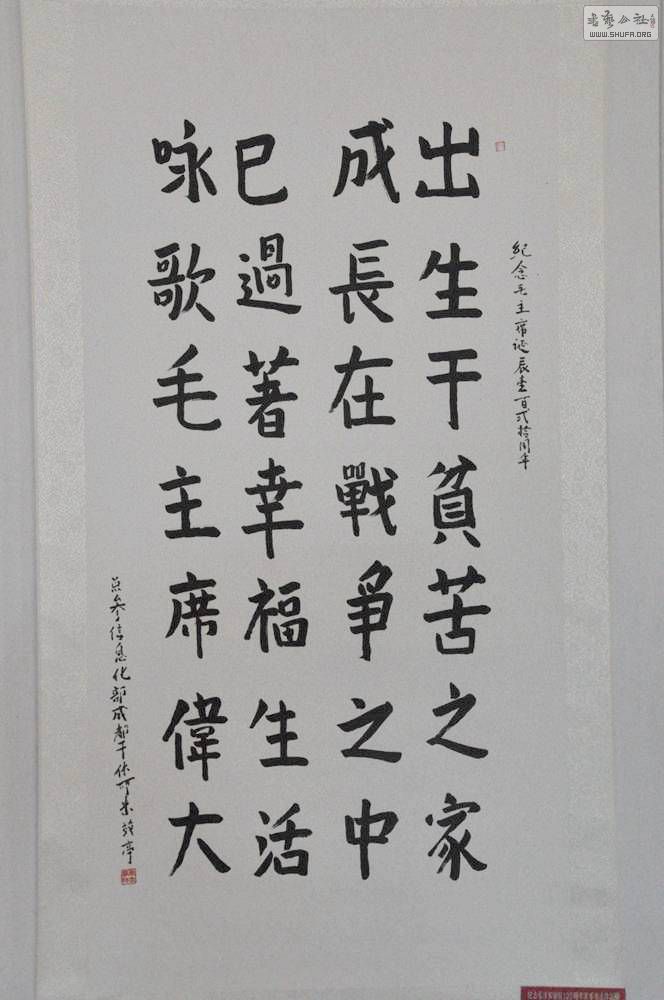 書藝公社
WWW.SHUFA.ORG
紀念毛主席诞辰壹百弍拾周年
出生干貧苦之家
成長在戰爭之中
已過著幸福生活
咏歌毛主席偉大
总参信息化部成都干休所